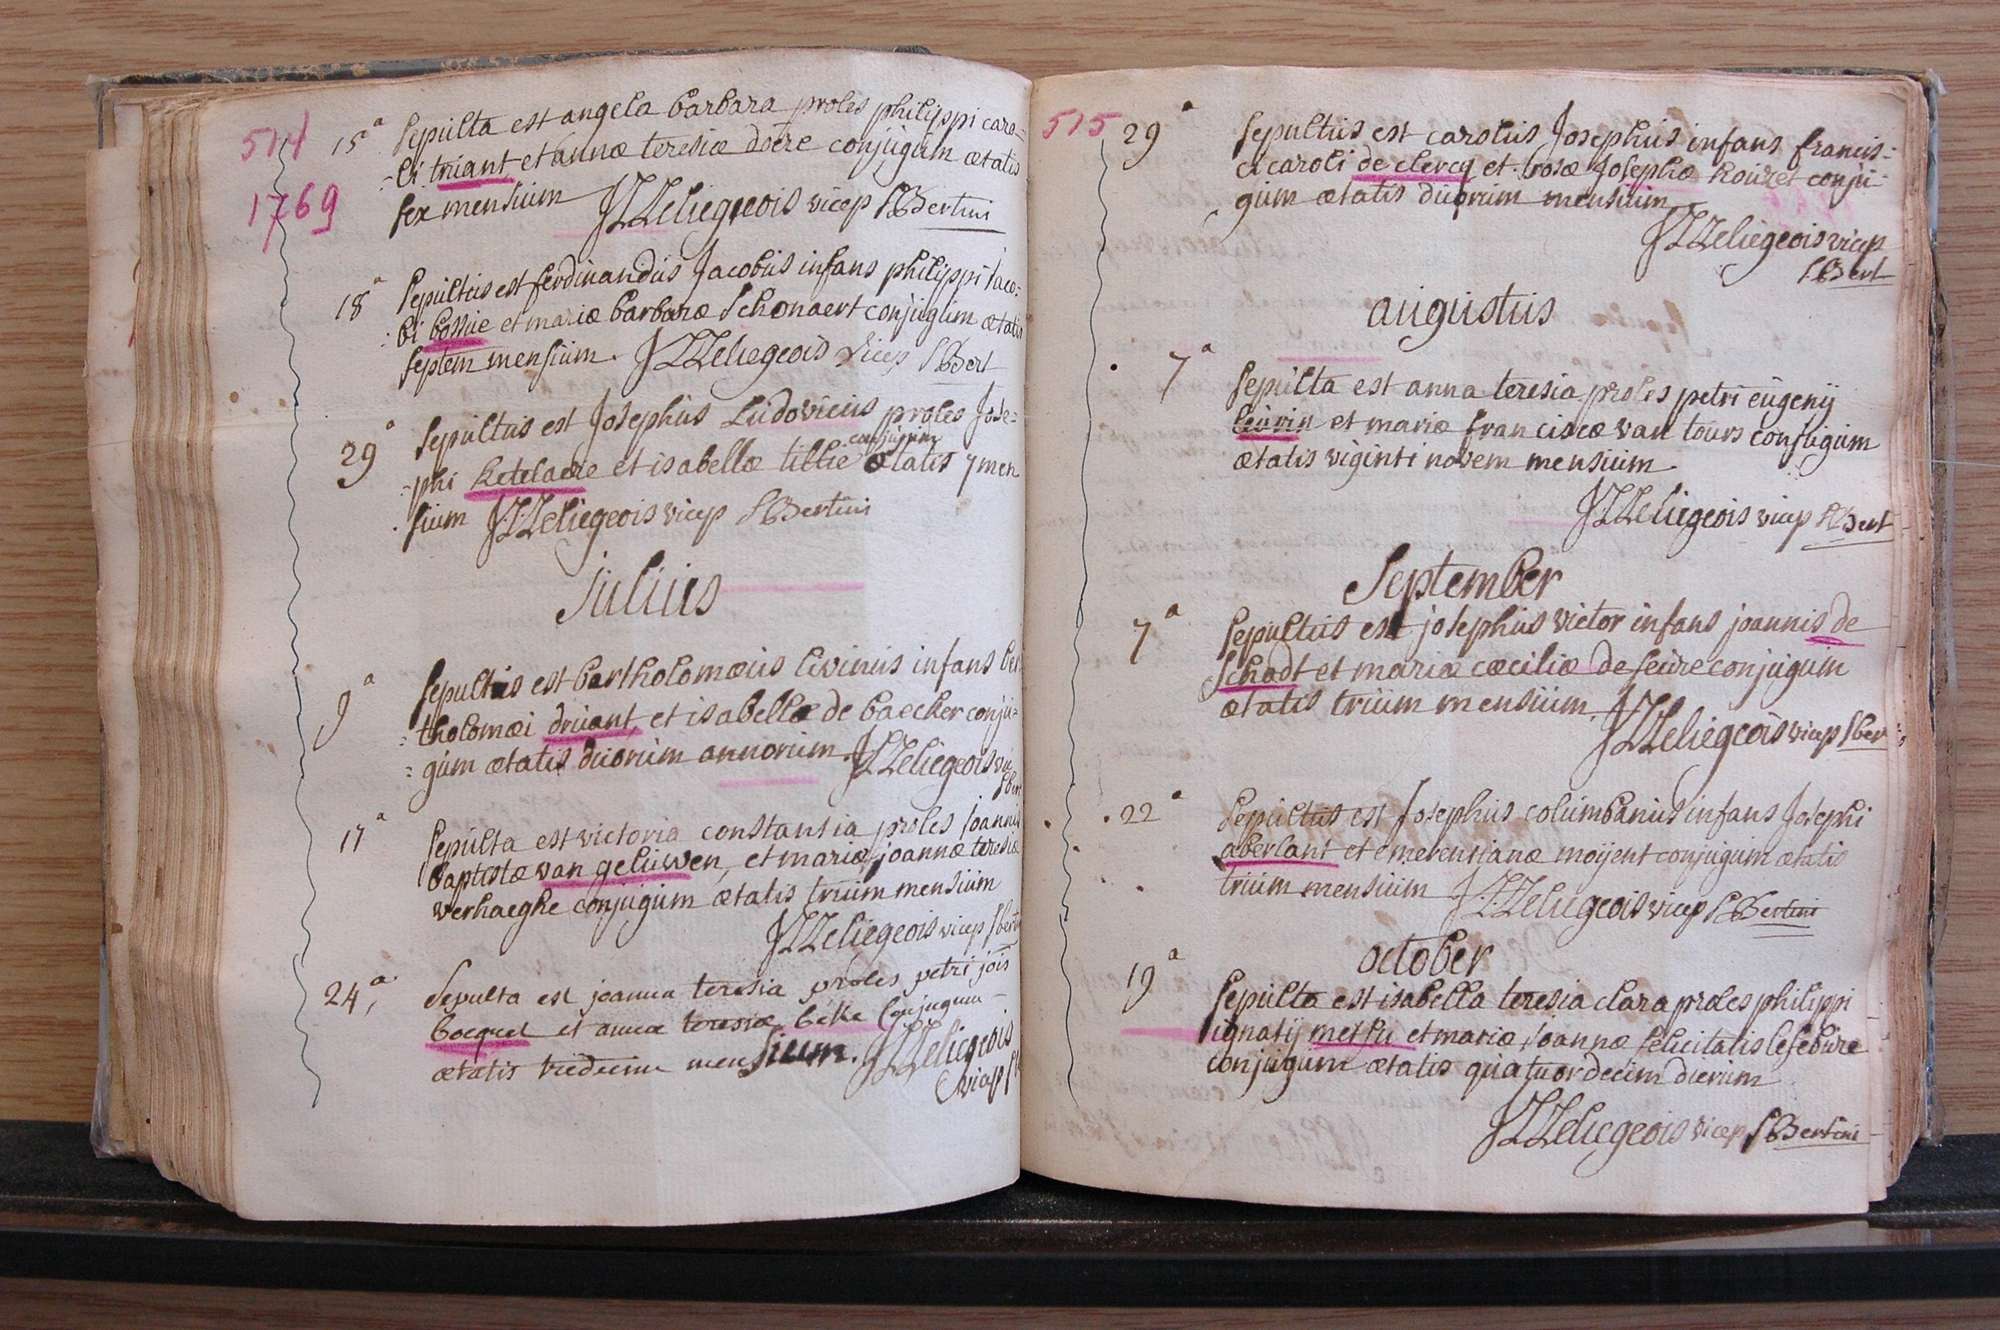 514
1769
15a Sepulta est angela barbara proles philippi caro=
=li triant, et annæ teresiæ doere conjugum ætatis
sex mensium JLLeliegeois vicep SBertini
18a Sepultus est ferdinandus Jacobus infans philippi Jaco=
=bi bossue et mariæ barbaræ Schonaert conjugum ætatis
septem mensium. JLLeliegeois vicep SBert
29a Sepultus est Josephus Ludovicus proles Jose=
conjugum
=phi Ketelaere et isabellæ tillie ætatis 7 men
sium JLLeliegeois vicep SBertini
Julius
9a Sepultus est bartholomæus livinus infans bar
=tholomæi druant, et isabellæ de baecker conju=
=gum ætatis duorum annorum. JLLeliegeois vic
SBer
17a Sepulta est victoria constantia proles Joannis
baptistæ van geluwen, et mariæ, joannæ teresiæ
verhaeghe conjugum ætatis trium mensium
JLLeliegeois vicep Sbert
24a, Sepulta est joanna teresia proles petri jois
bocquet et annæ teresiæ beke Conjugum
ætatis tredecim mensium. JLLeliegeois
vicep S
515
29a Sepultus est carolus Josephus infans francis=
ci caroli de clercq et rosæ Josephæ Rouzet conju=
gum ætatis duorum mensium
JLLeliegeois vicep
SBert
augustus
7a Sepulta est anna teresia proles petri eugenij
leuvin et mariæ franciscæ van tours conjugum
ætatis viginti novem mensium.
JLLeliegeois vicep SBert
September
7a Sepultus est josephus victor infans joannis de
Schodt et maria cæciliæ de seure conjugum
ætatis trium mensium. JLLeliegeois vicep Sber
22a Sepultus est Josephus columbanus infans Josephi
aberlant et emerentianæ moijent conjugum ætatis
trium mensium J.LLeliegeois vicep SBertini
october
19a Sepulta est isabella teresia clara proles philippi
ignatij metsu et mariæ Joannæ felicitatis lefebure
conjugum ætatis quatuordecim dierum
JLLeliegeois vicep SBertini